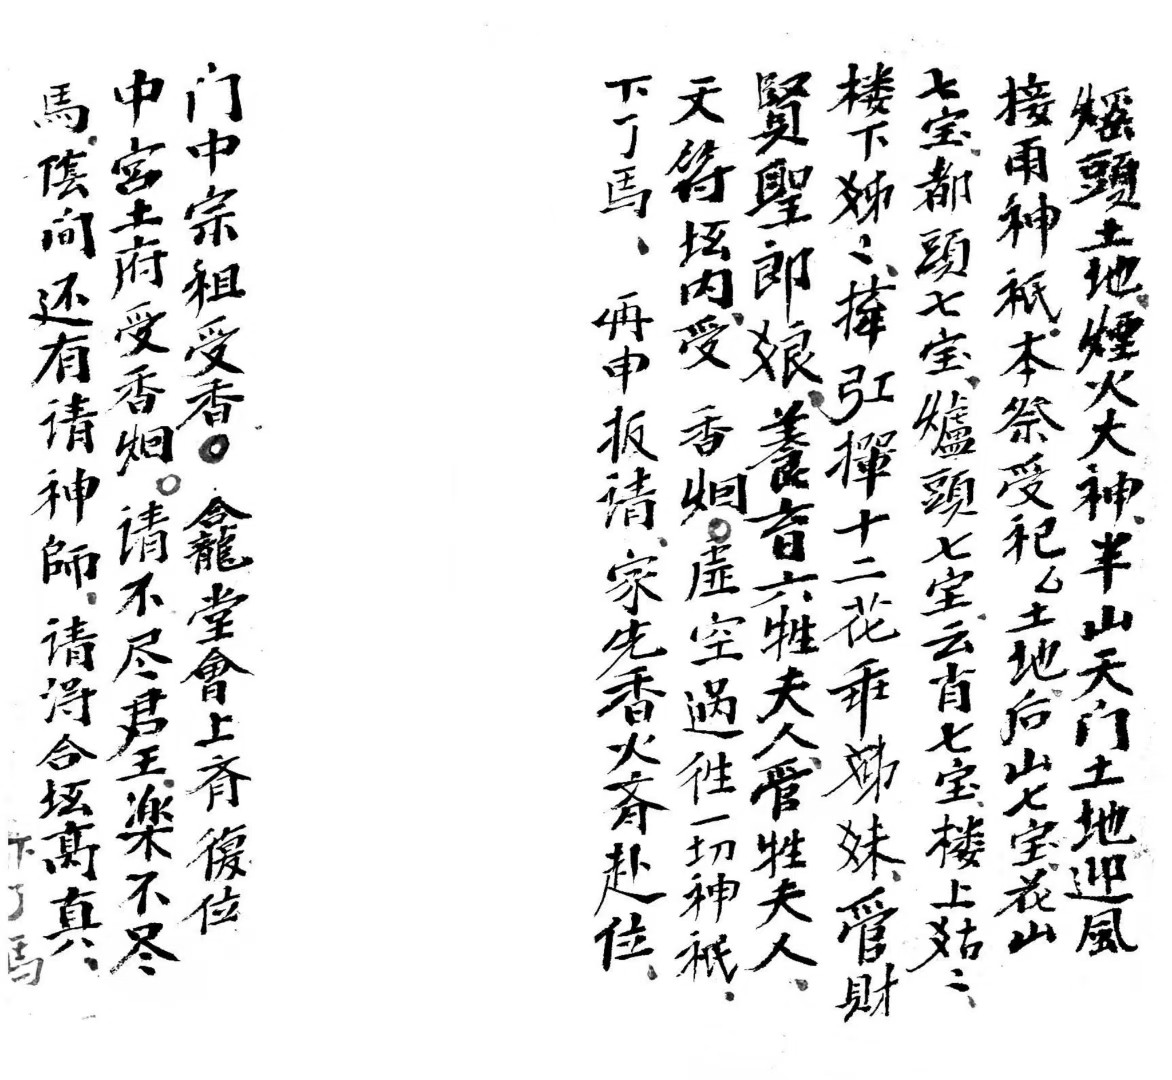 頭土地、煙火大神、半山天门土地迎風
接雨神祇、本祭受祀、土地后山七宝、花山
七宝、都頭七宝、爐頭七宝、云肖七宝、楼上姑〻、
楼下姊〻、揮引揮十二花乖姊妹、管財
賢聖郎娘、養畜六牲夫人、管牲夫人、
天符坛内、受香烟。虚空过往一切神祇、
下了馬、再申扳请、家先香火斉赴位、
门中宗祖受香。合龍堂會上斉復位
中宫土府受香烟。请不尽君王、楽不尽
馬、陰间还有请神師、请得合坛高真、
下了馬